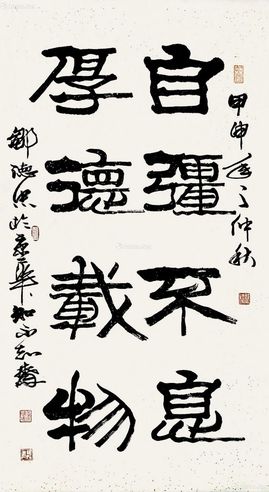 自彊不息
厚德載物
甲申年之仲秋
鄒德忠於京華知不知齋